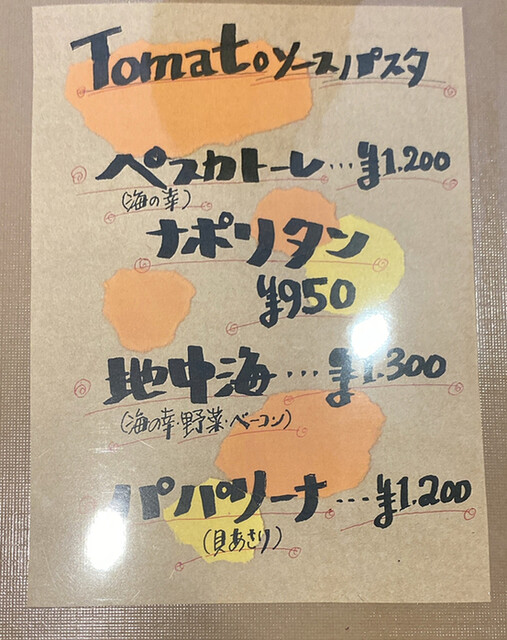 Tomatoソースパスタ
ペスカトーレ…¥1.200
(海の幸)
ナポリタン
¥950
地中海…¥1.300
(海の幸・野菜・ベーコン)
パパソーナ…¥1.200
(貝あさり)